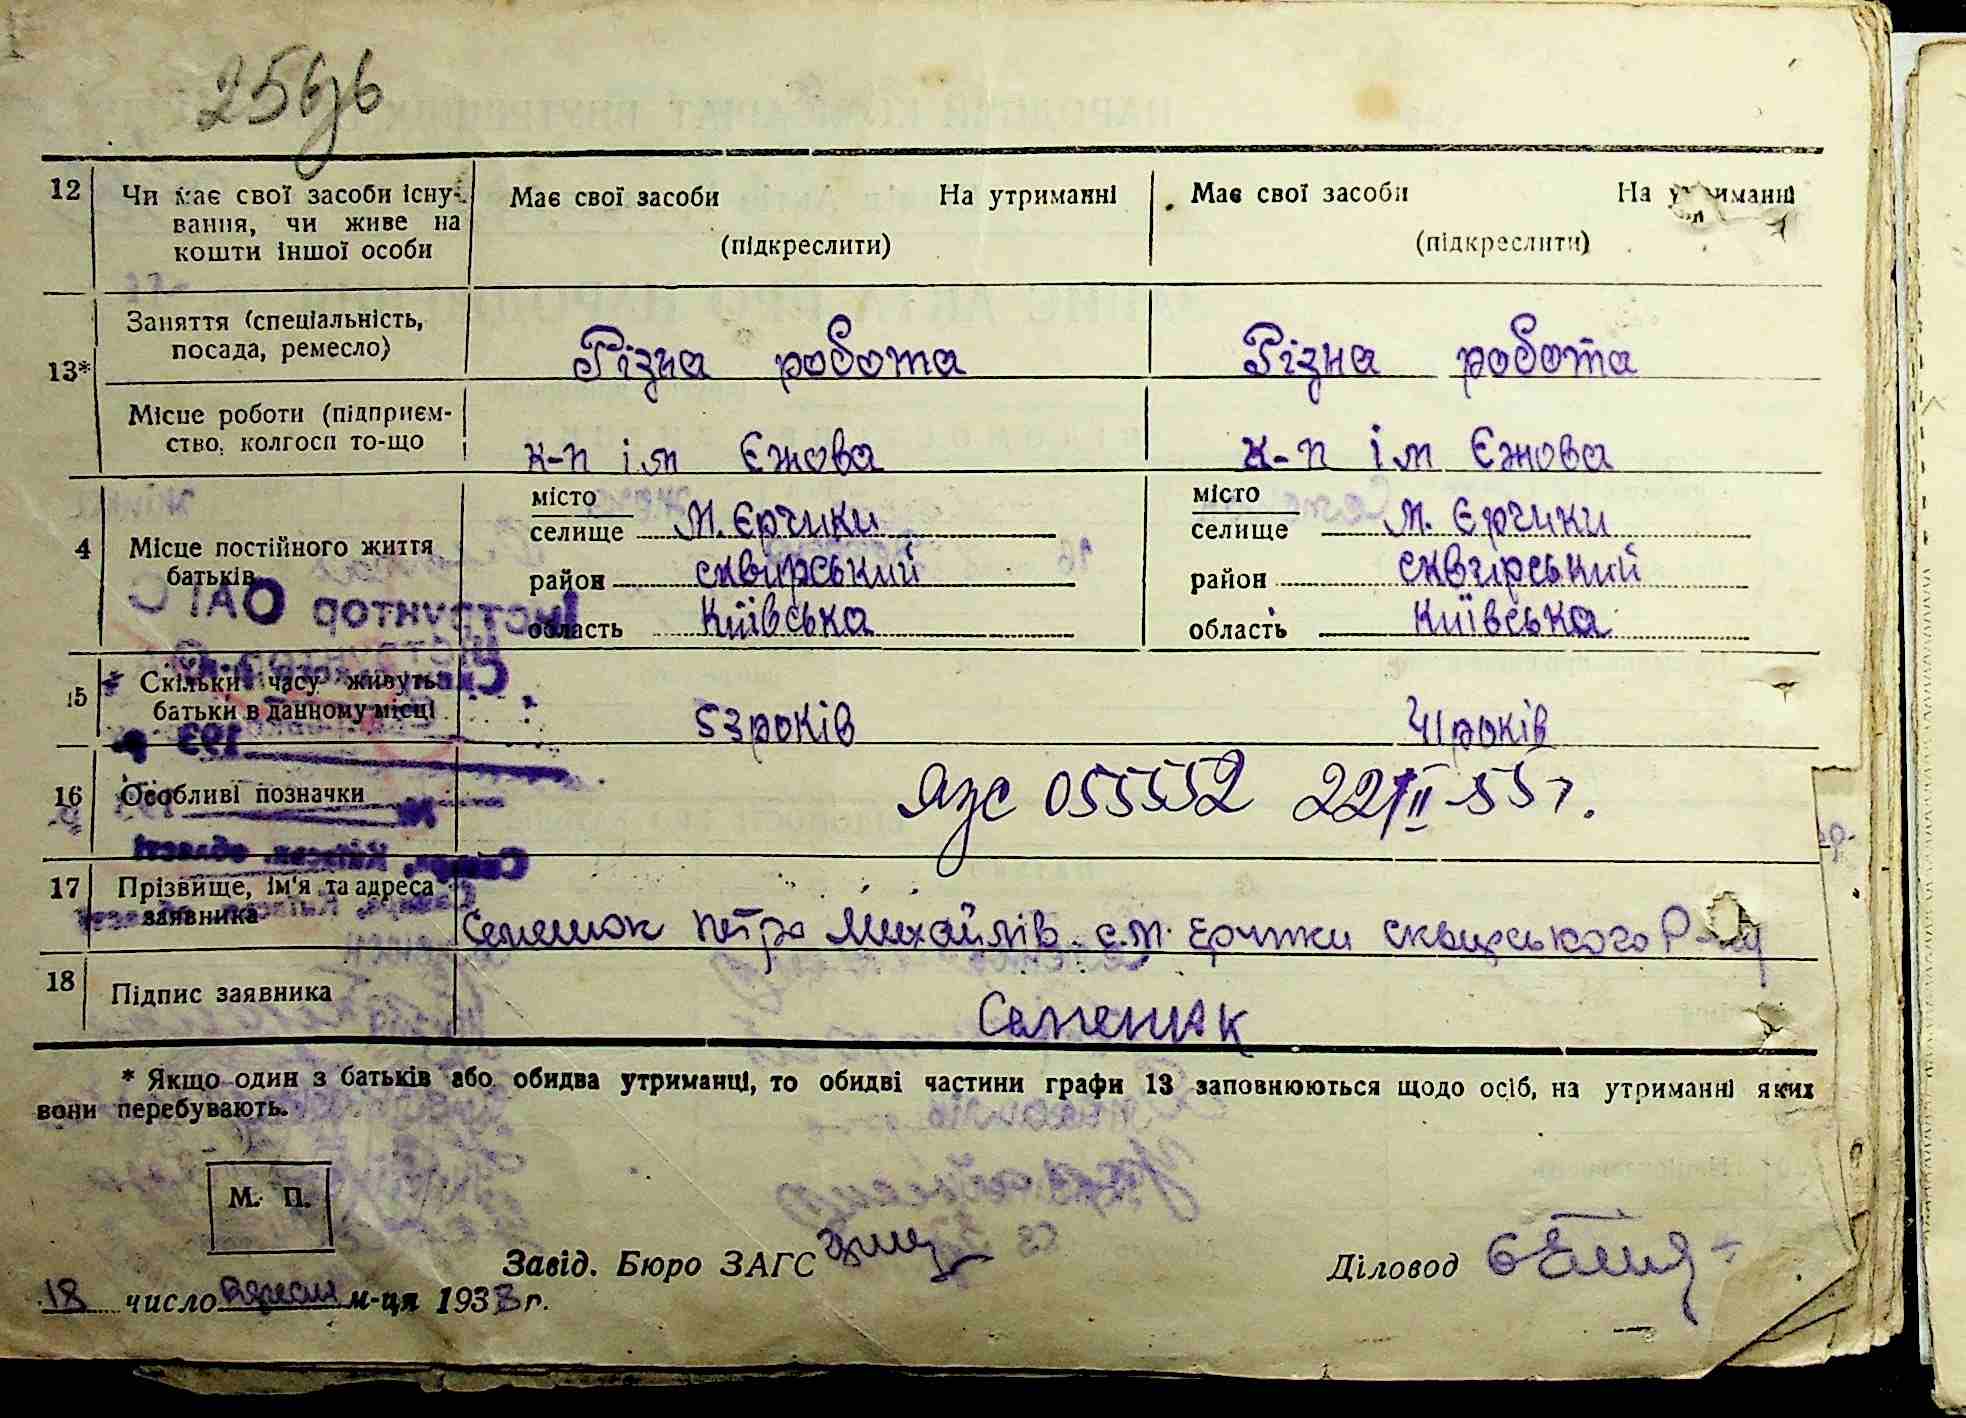 256зв
12 Чи має свої засоби існу- Має свої засоби На утриманні Має свої засоби На утриманні
вання, чи живе на
кошти іншої особи (підкреслити) (підкреслити)
13* Заняття (спеціальність,
посада, ремесло) Різна робота Різна робота
Місце роботи (підприєм-
ство, колгосп то-що к-п ім Єжова к-п ім Єжова
місто місто
селище М. Єрчики селище М. Єрчики
4 Місце постійного життя
батьків район сквирський район сквирський
Інструктор ОАГС
область Київська область Київська
15 Скільки часу живуть
батьки в данному місці 53 років 41 років
193 р
16 Особливі позначки ЯЗС 055552 22/II-55 г.
Сквир. Київськ. області
17 Прізвище, ім'я та адреса
заявника Семенюк Петро Михайлів с.м. Єрчики сквирського р-ну
18 Підпис заявника Семенюк
* Якщо один з батьків або обидва утриманці, то обидві частини графи 13 заповнюються щодо осіб, на утриманні яких
вони перебувають.
М. П.
Завід. Бюро ЗАГС Діловод
18 число вересня м-ця 1938 г.